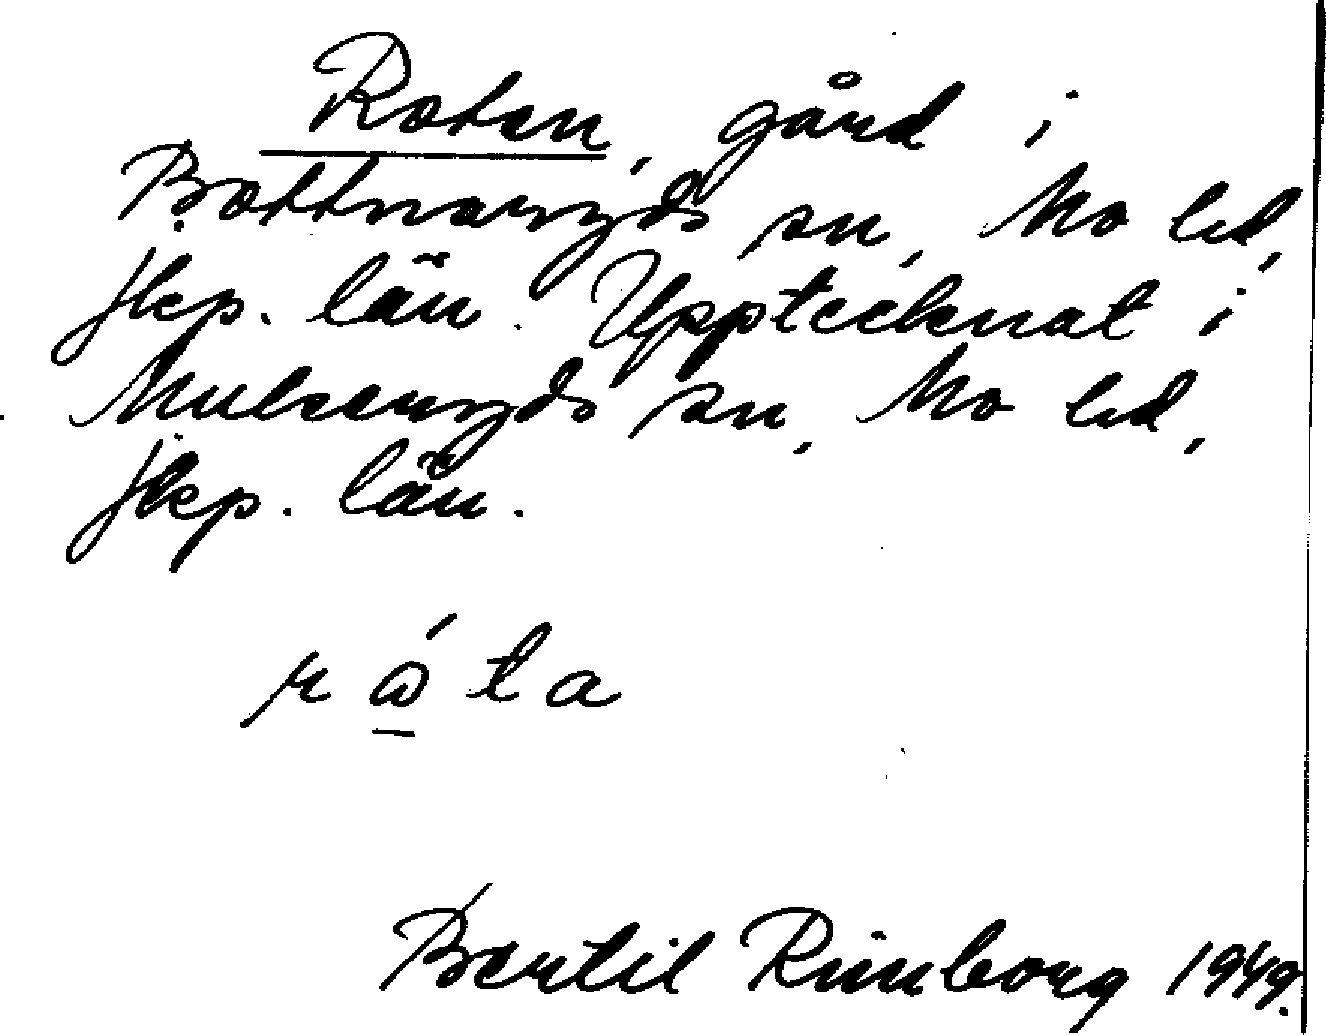 Roten, gård i
Bottnaryds sn, Mo hd,
Jkp. län. Upptecknat i
Mulseryds sn, Mo hd,
Jkp. län.
rώ̲ta
Bertil Rimborg 1949.